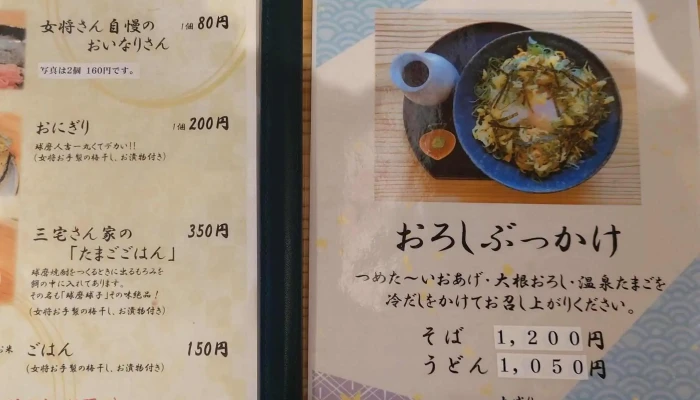 女将さん自慢の
おいなりさん
1個 80円
写真は2個 160円です。
おにぎり
1個 200円
球磨人吉一丸くてデカい!!
(女将お手製の梅干し、お漬物付き)
三宅さん家の
「たまごごはん」
350円
球磨焼酎をつくるときに出るもろみを
餌の中に入れてあります。
その名も「球磨球子」その味絶品!
(女将お手製の梅干し、お漬物付き)
お米 ごはん
150円
(女将お手製の梅干し、お漬物付き)
おろしぶっかけ
つめた〜いおあげ・大根おろし・温泉たまごを
冷だしをかけてお召し上がりください。
そば 1,200円
うどん 1,050円